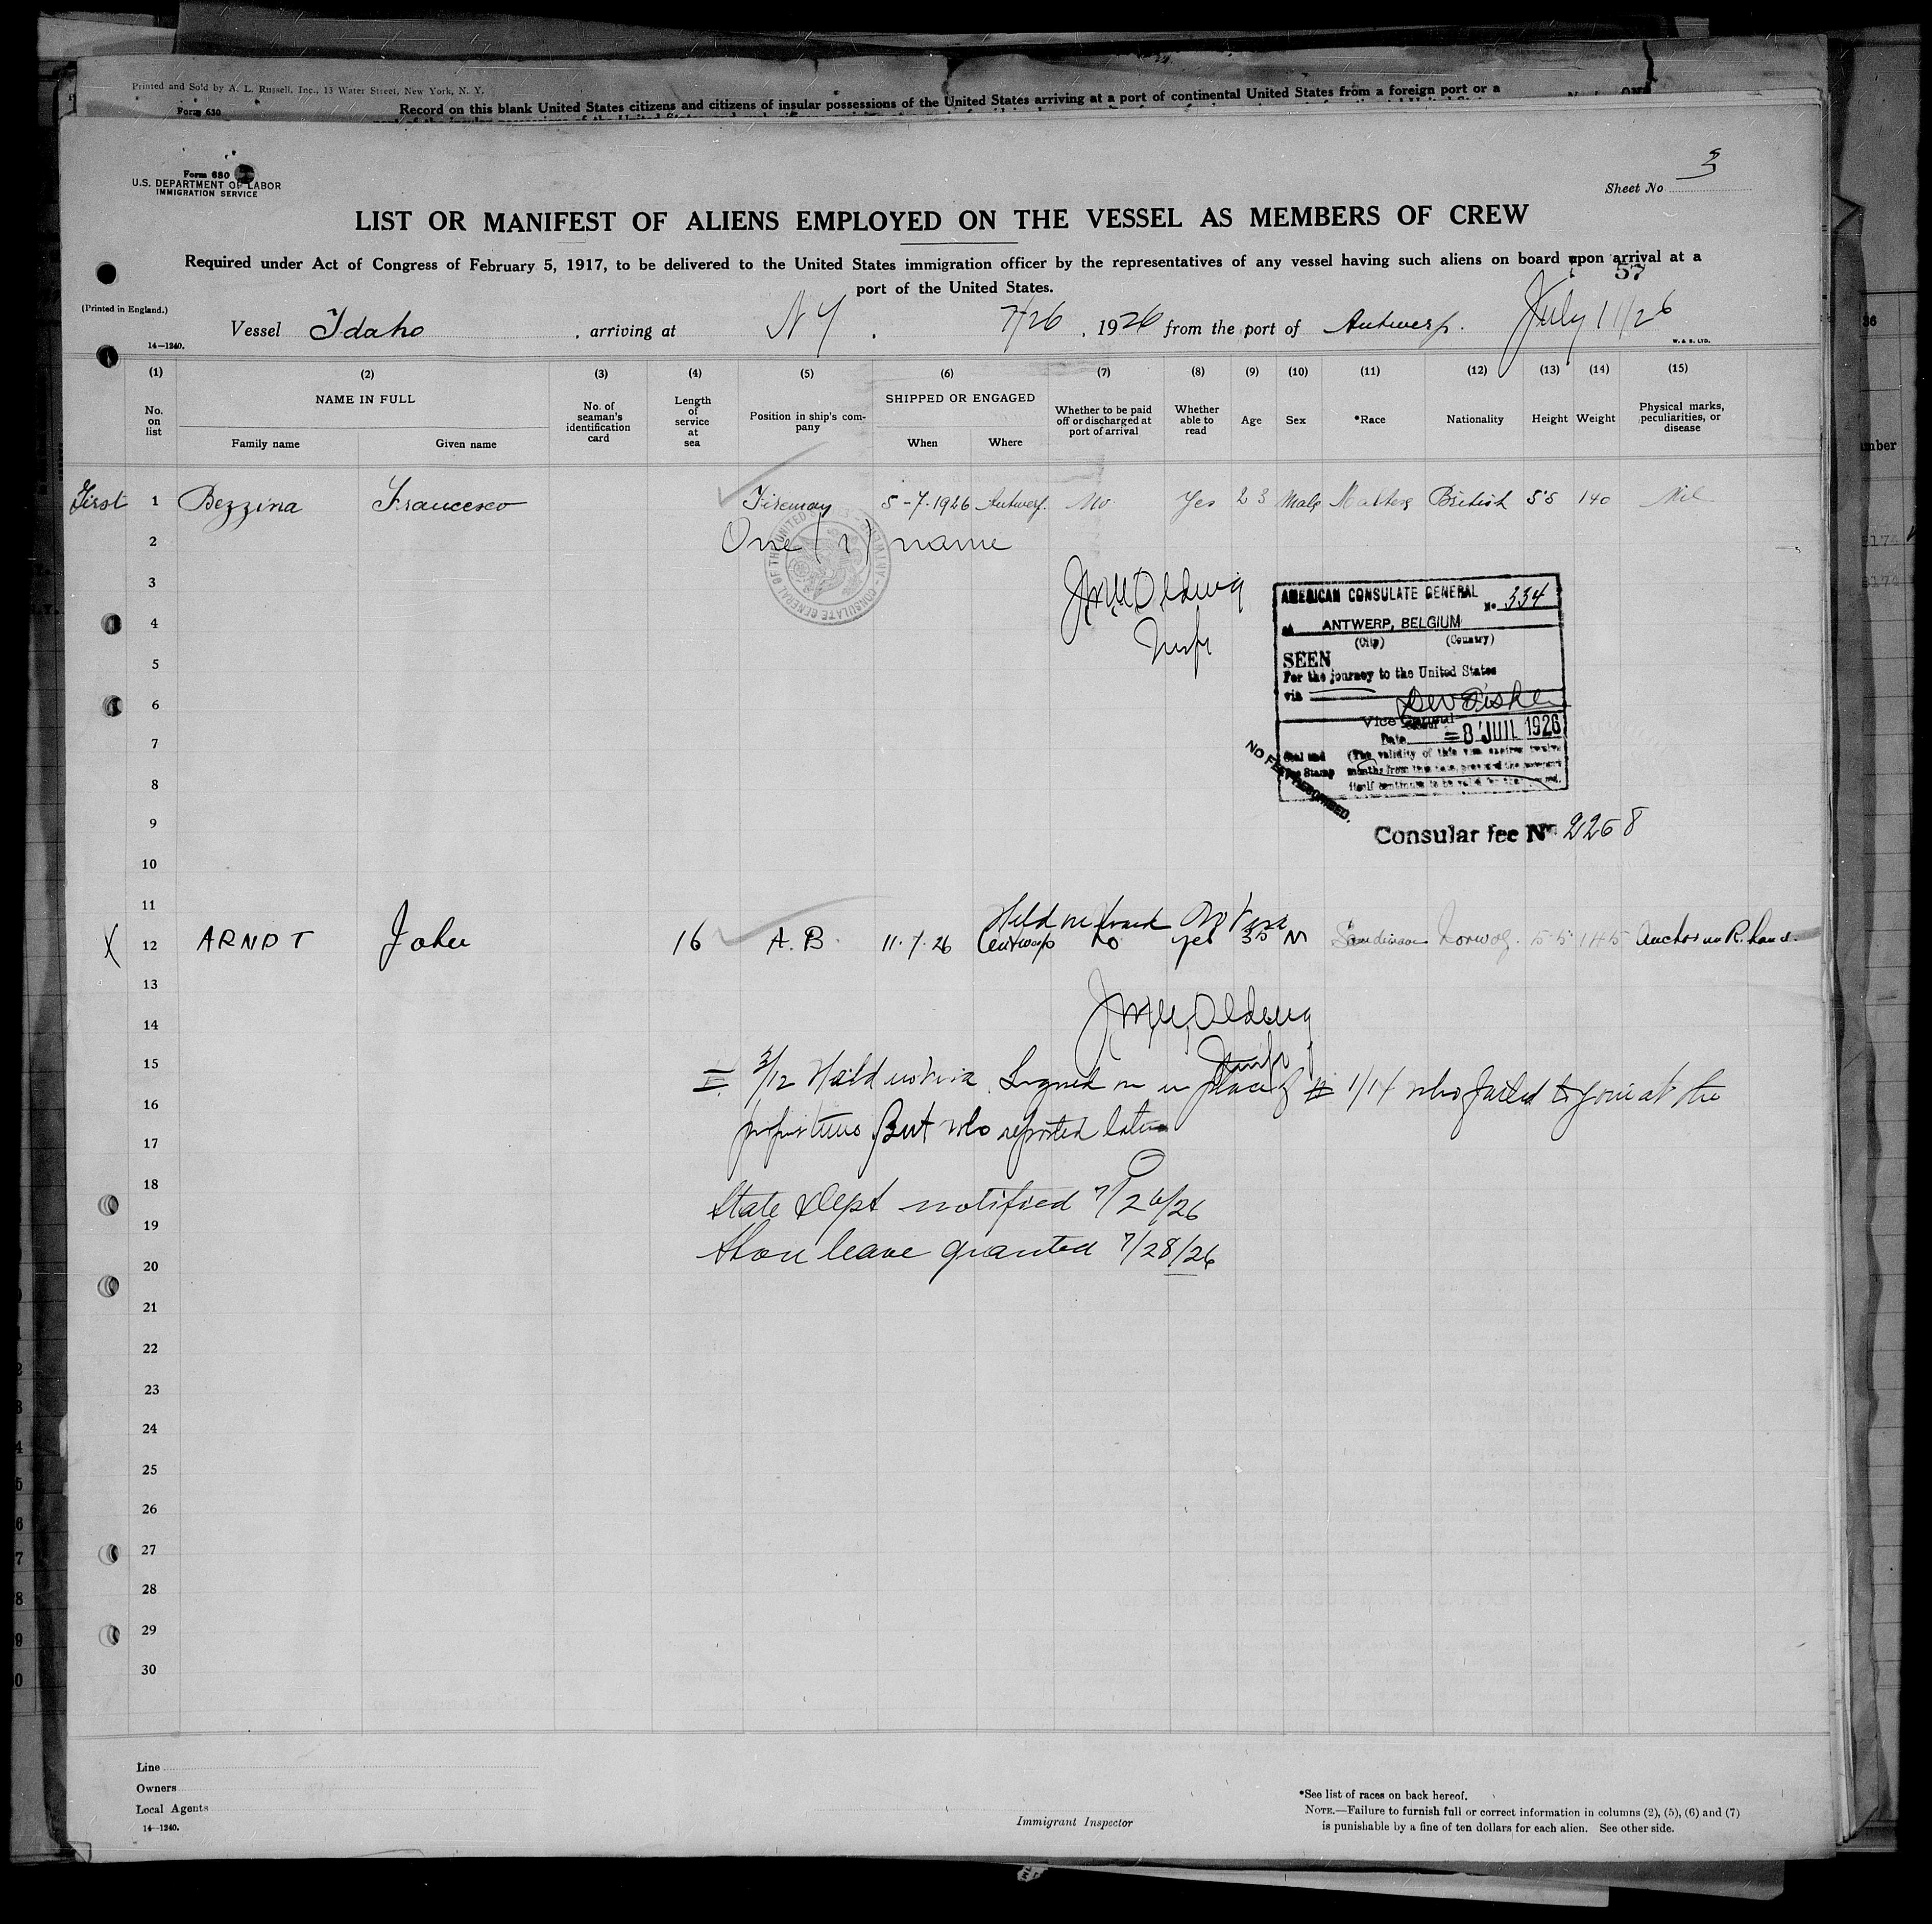 Printed and Sold by A. L. Russell, Inc., 13 Water Street, New York, N. Y.
Form 630
Record on this blank United States citizens and citizens of insular possessions of the United States arriving at a port of continental United States from a foreign port or a
Form 680
U.S. DEPARTMENT OF LABOR
IMMIGRATION SERVICE
Sheet No 3
LIST OR MANIFEST OF ALIENS EMPLOYED ON THE VESSEL AS MEMBERS OF CREW
Required under Act of Congress of February 5, 1917, to be delivered to the United States immigration officer by the representatives of any vessel having such aliens on board upon arrival at a
port of the United States.
57
(Printed in England.)
Vessel Idaho , arriving at N Y . 7/26 , 1926 from the port of Antwerp. July 11/26
14—1240.
W. & S. LTD.
(1) (2) (3) (4) (5) (6) (7) (8) (9) (10) (11) (12) (13) (14) (15)
No. on list
NAME IN FULL
Family name Given name
No. of seaman's identification card
Length of service at sea
Position in ship's company
SHIPPED OR ENGAGED
When Where
Whether to be paid off or discharged at port of arrival
Whether able to read
Age
Sex
*Race
Nationality
Height
Weight
Physical marks, peculiarities, or disease
First 1 Bezzina Francesco Fireman 5-7-1926 Antwerp. No Yes 23 Male Maltese British 5'5 140 Nil
2 One (1) name
3
4
5
6
7
8
9
10
AMERICAN CONSULATE GENERAL
No. 334
At ANTWERP, BELGIUM
(City) (Country)
SEEN
For the journey to the United States
via
Vice Consul
Date 8 JUIL 1926
Seal and Fee Stamp
(The validity of this visa expires twelve
months from this date, provided the passport
itself continues to be valid for that period.
NO FEE PRESCRIBED.
Consular fee No 2258
11
Held on board No Visa
X 12 ARNDT John 16 A.B. 11.7.26 Antwerp no yes 35 M Scandinav Norweg. 5-5 145 Anchor on R. hand.
13
14
15
3/12 Held no visa. Signed on in place of # 1/14 who failed to join at the
16
proper time But who reported later
17
18
State Dept notified 7/26/26
19
Shore leave granted 7/28/26
20
21
22
23
24
25
26
27
28
29
30
Line
Owners
Local Agents
14—1240.
Immigrant Inspector
*See list of races on back hereof.
NOTE.—Failure to furnish full or correct information in columns (2), (5), (6) and (7)
is punishable by a fine of ten dollars for each alien. See other side.